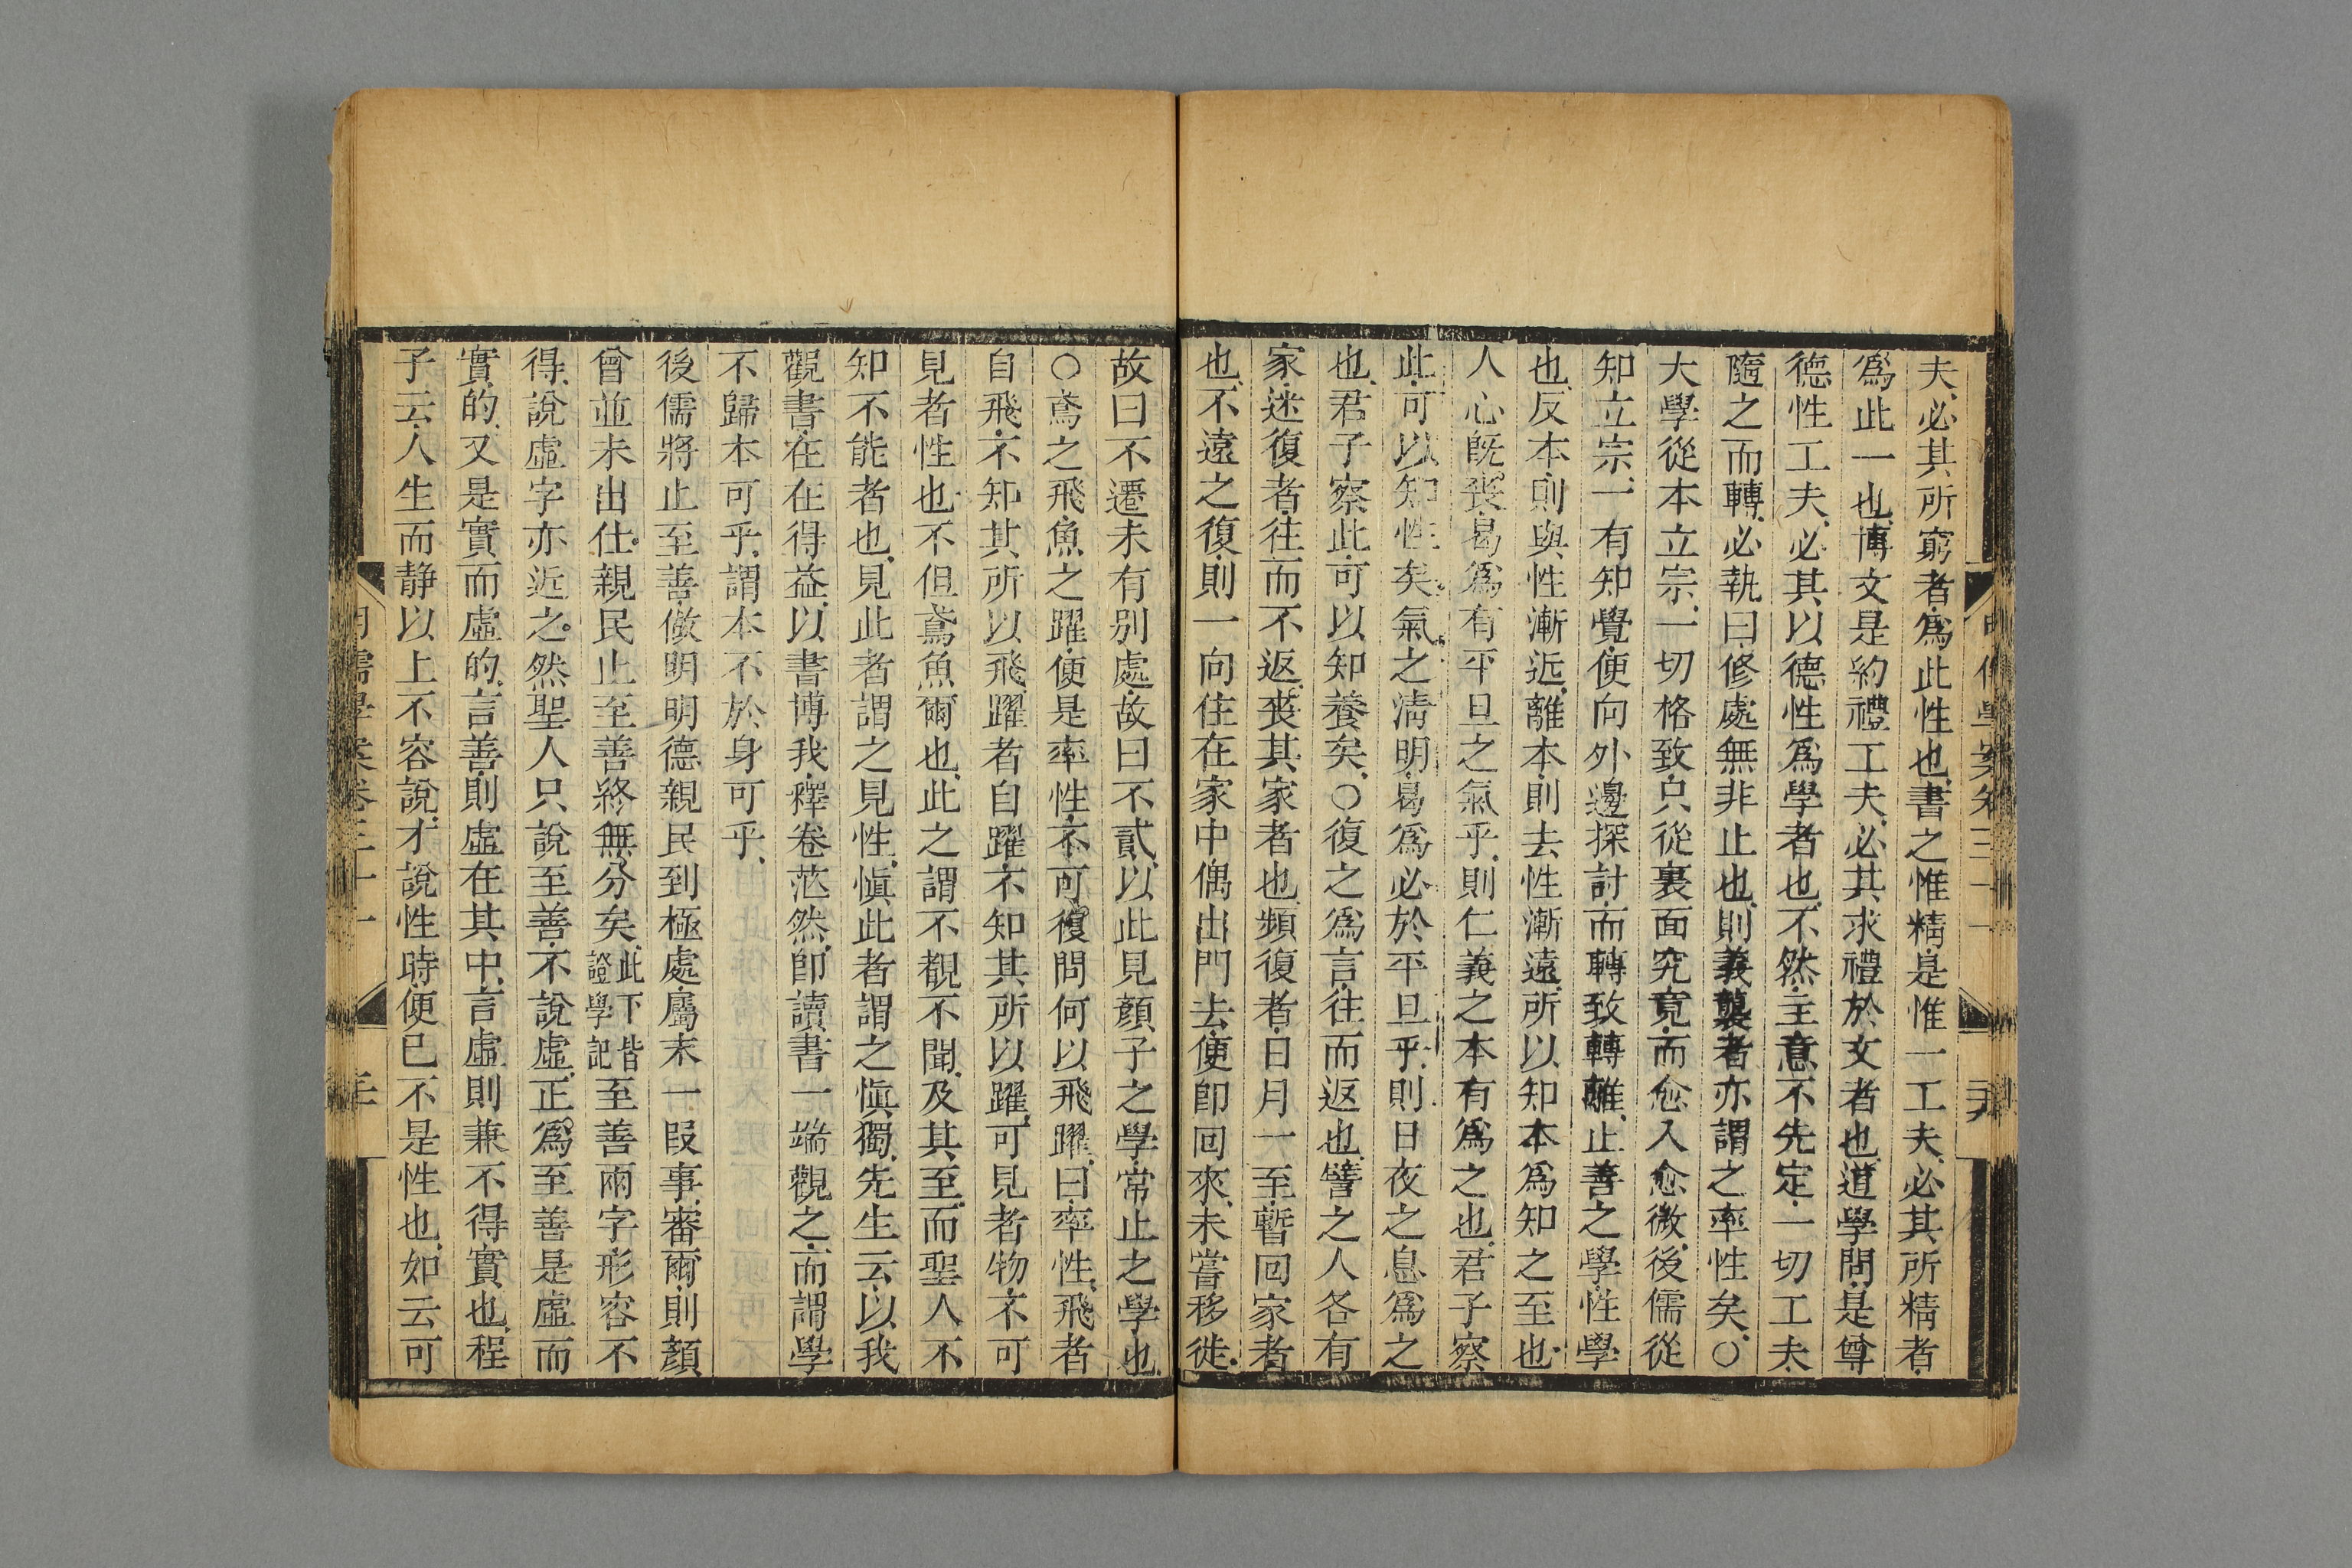 夫必其所窮者爲此性也書之惟精是惟一工夫必其所精者
爲此一也博文是約禮工夫必其求禮於文者也道學問是尊
德性工夫必其以德性爲學者也不然主意不先定一切工夫
隨之而轉必執曰修處無非止也則義襲者亦謂之率性矣○
大學從本立宗一切格致只從裏面究竟而愈入愈微後儒從
知立宗一有知覺便向外邊探討而轉致轉離止善之學性學
也反本則與性漸近離本則去性漸遠所以知本爲知之至也
人心旣喪曷爲有平旦之氣乎則仁義之本有爲之也君子察
此可以知性矣氣之淸明曷爲必於平旦乎則日夜之息爲之
也君子察此可以知養矣○復之爲言往而返也譬之人各有
家迷復者往而不返喪其家者也頻復者日月一至暫回家者
也不遠之復則一向住在家中偶出門去便卽回來未嘗移徙
故曰不遷未有別處故曰不貳以此見顔子之學常止之學也
○鳶之飛魚之躍便是率性不可復問何以飛躍曰率性飛者
自飛不知其所以飛躍者自躍不知其所以躍可見者物不可
見者性也不但鳶魚爾也此之謂不覩不聞及其至而聖人不
知不能者也見此者謂之見性愼此者謂之愼獨先生云以我
觀書在在得益以書博我釋卷茫然卽讀書一端觀之而謂學
不歸本可乎謂本不於身可乎
後儒將止至善做明明德親民到極處屬末一段事審爾則顔
曾並未出仕親民止至善終無分矣此下皆證學記至善兩字形容不
得說虛字亦近之然聖人只說至善不說虛正爲至善是虛而
實的又是實而虛的言善則虛在其中言虛則兼不得實也程
子云人生而静以上不容說才說性時便已不是性也如云可
明儒學案卷三十一